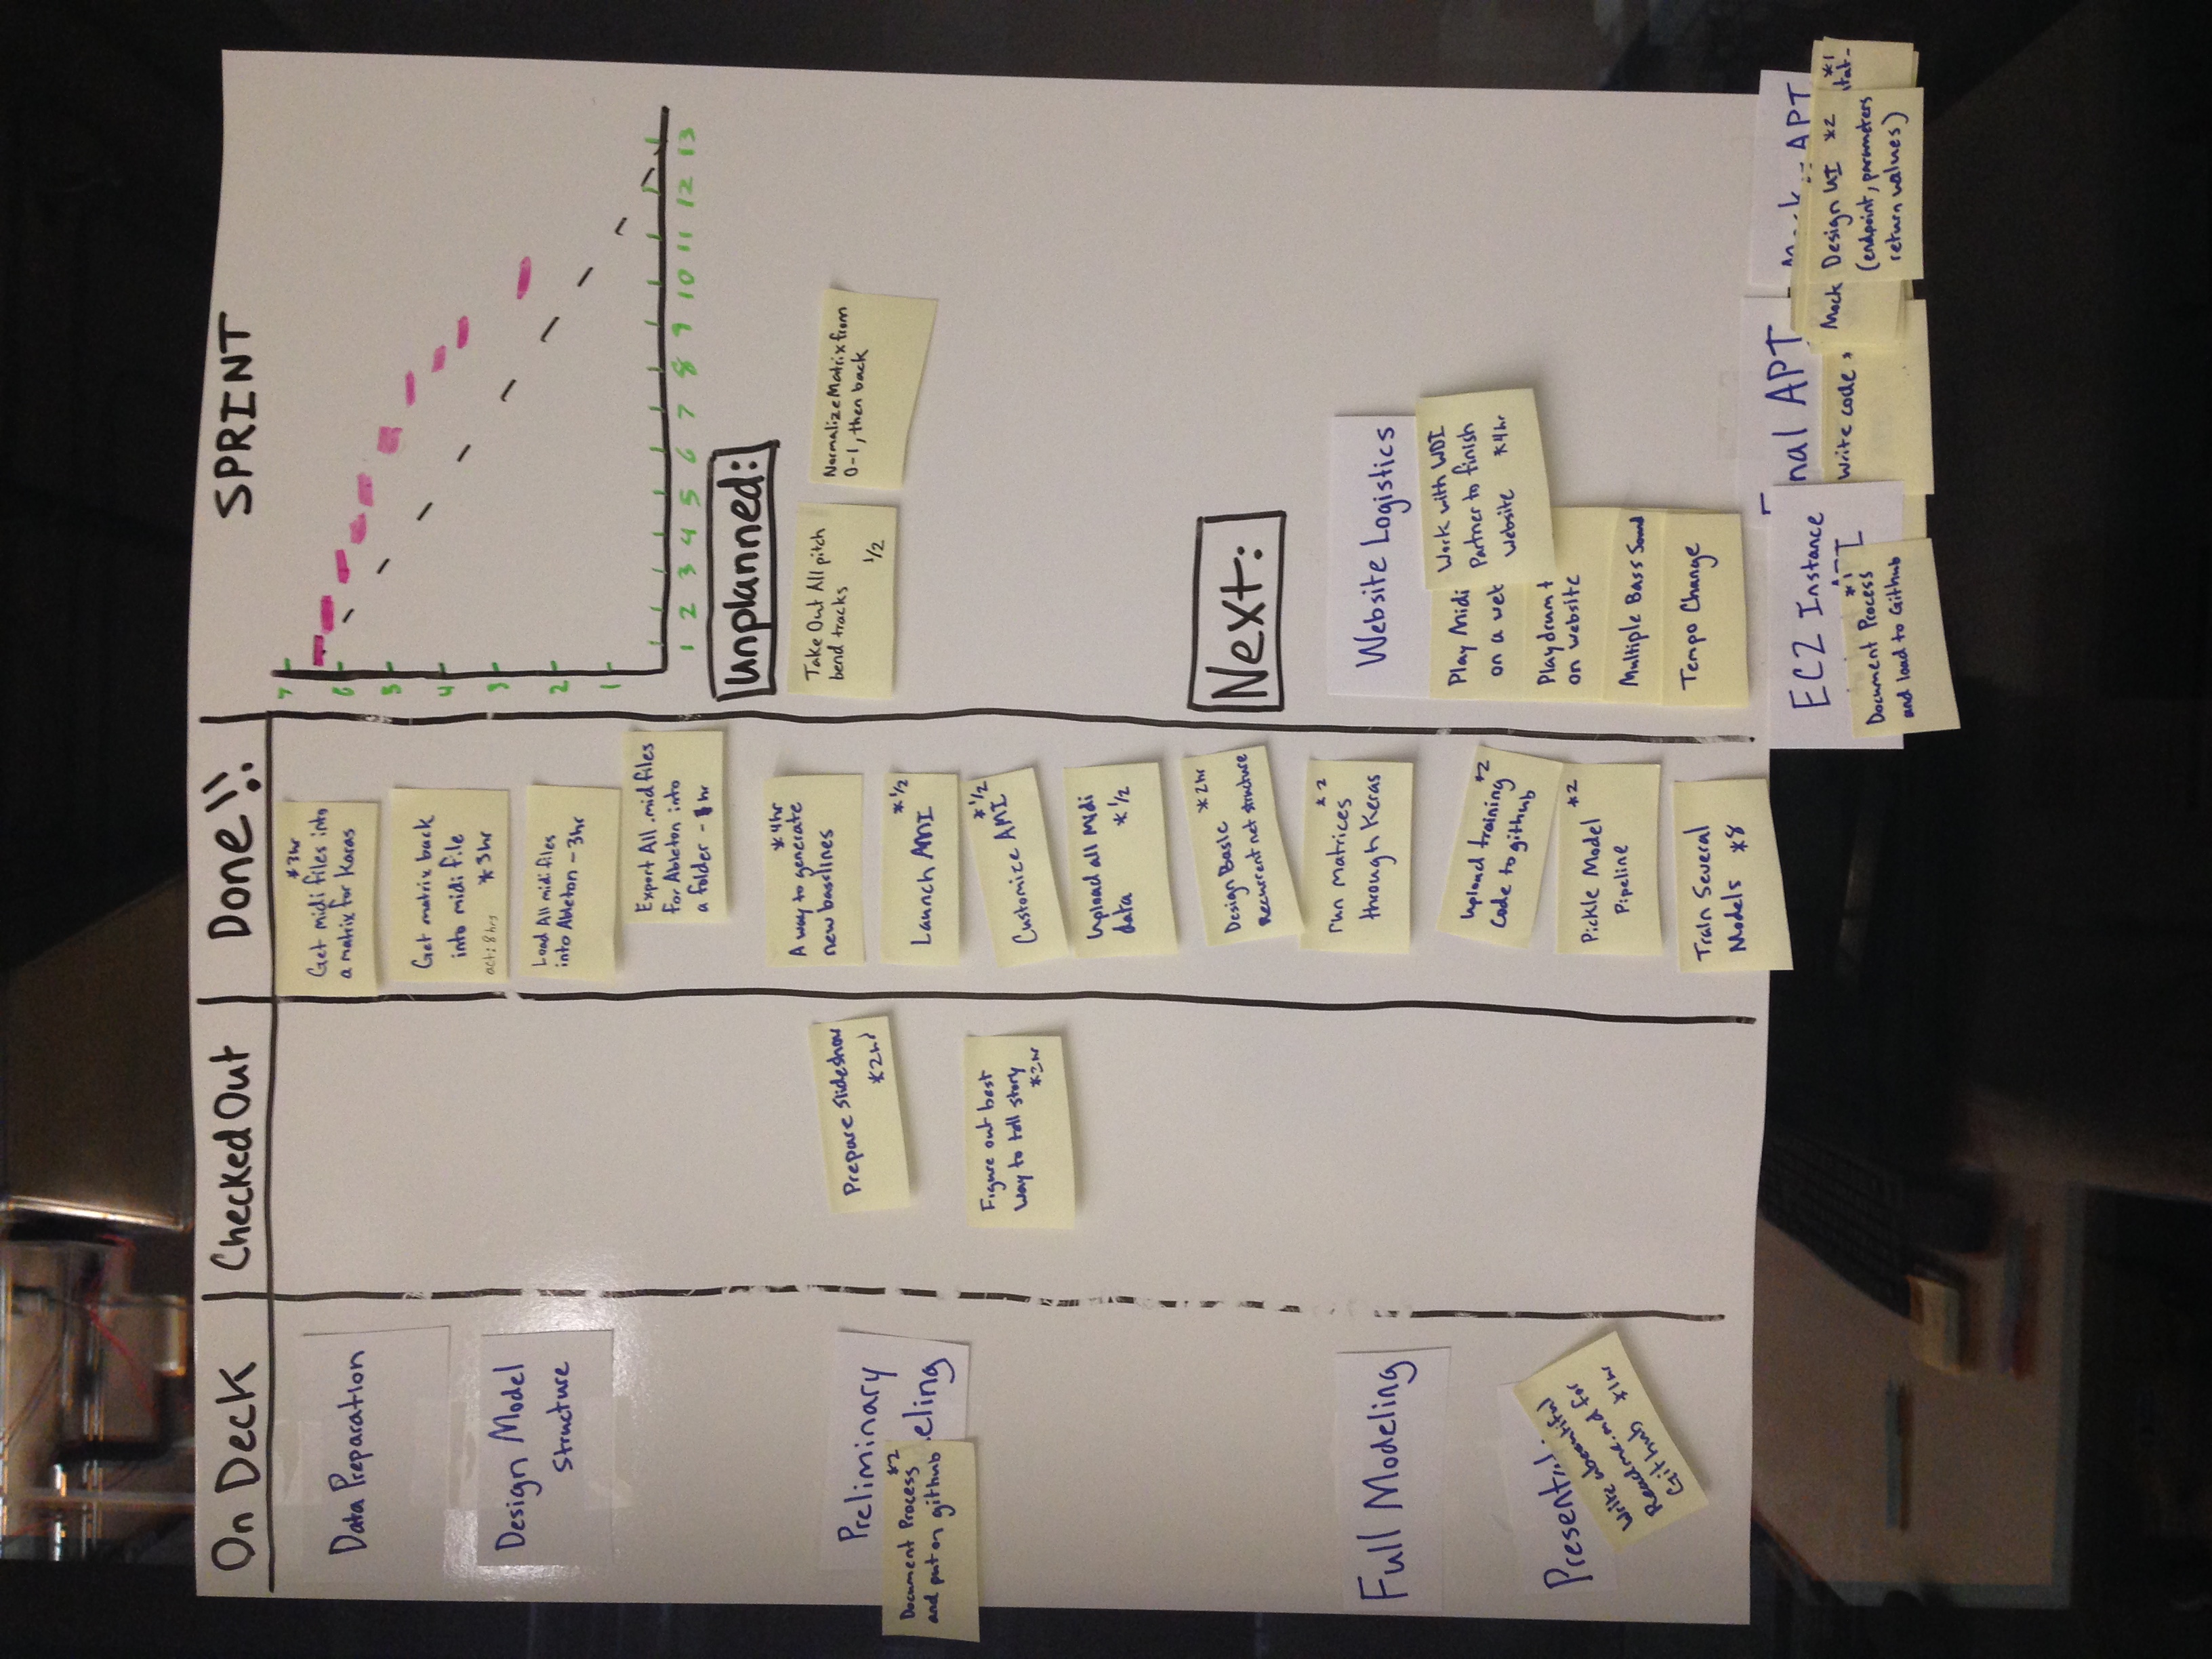 On Deck
Checked Out
Done!!
SPRINT
Data Preparation
Design Model
Structure
Preliminary
eling
Document Process *2
and put on github
Full Modeling
Present
Write a beautiful
Readme.md for
Github *1hr
Prepare Slideshow
*2hr
Figure out best
way to tell story
*2hr
*3hr
Get midi files into
a matrix for Karas
Get matrix back
into midi file
act: 8hrs *3hr
Load All midi files
into Ableton - 3hr
Export All .mid files
for Ableton into
a folder - 1 hr
*4hr
A way to generate
new basslines
*1/2
Launch AMI
*1/2
Customize AMI
Upload all Midi
data *1/2
*2hr
Design Basic
Recurrent net structure
*2
run matrices
through Keras
Upload training *2
code to github
Pickle Model *2
Pipeline
Train Several
Models *8
7
6
5
4
3
2
1
1 2 3 4 5 6 7 8 9 10 11 12 13
Unplanned:
Take Out All pitch
bend tracks
1/2
Normalize Matrix from
0-1, then back
Next:
Website Logistics
Play Midi
on a
Work with WDI
Partner to finish
Website *4hr
Play drum
on website
Multiple Bass Sound
Tempo Change
EC2 Instance
*1
Document Process
and load to Github
nal API
Write code
API
Mock
Design UI *2
(endpoint, parameters
return values)
*1